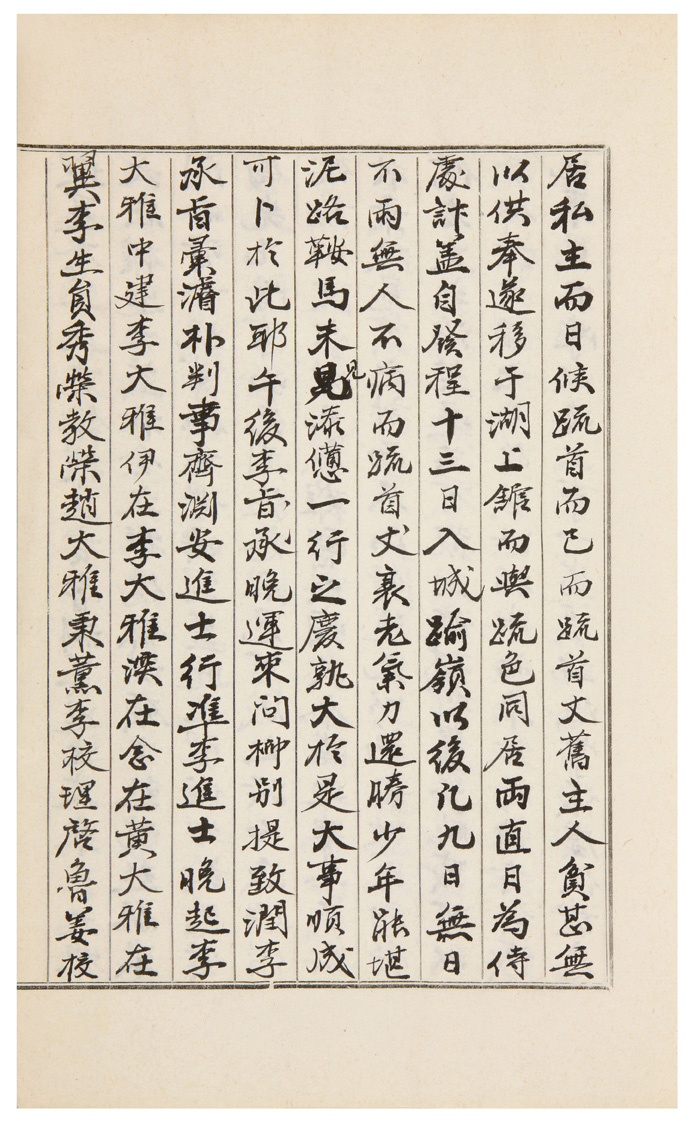 居私主而日候疏首而已而疏首丈舊主人貧甚無
以供奉遂移于湖上舘而與疏色同居兩直日為侍
處計盖自發程十三日入城踰嶺以後凡九日無日
不雨無人不病而疏首丈衰老氣力還勝少年能堪
泥路鞍馬未見添憊一行之慶孰大於是大事順成
可卜於此耶午後李承旨晚運來問柳別提致潤李
承旨彙溭朴判事齊淵安進士行準李進士晚起李
大雅中建李大雅伊在李大雅漢在念在黃大雅在
翼李生員秀榮教榮趙大雅秉薰李校理啓魯姜校